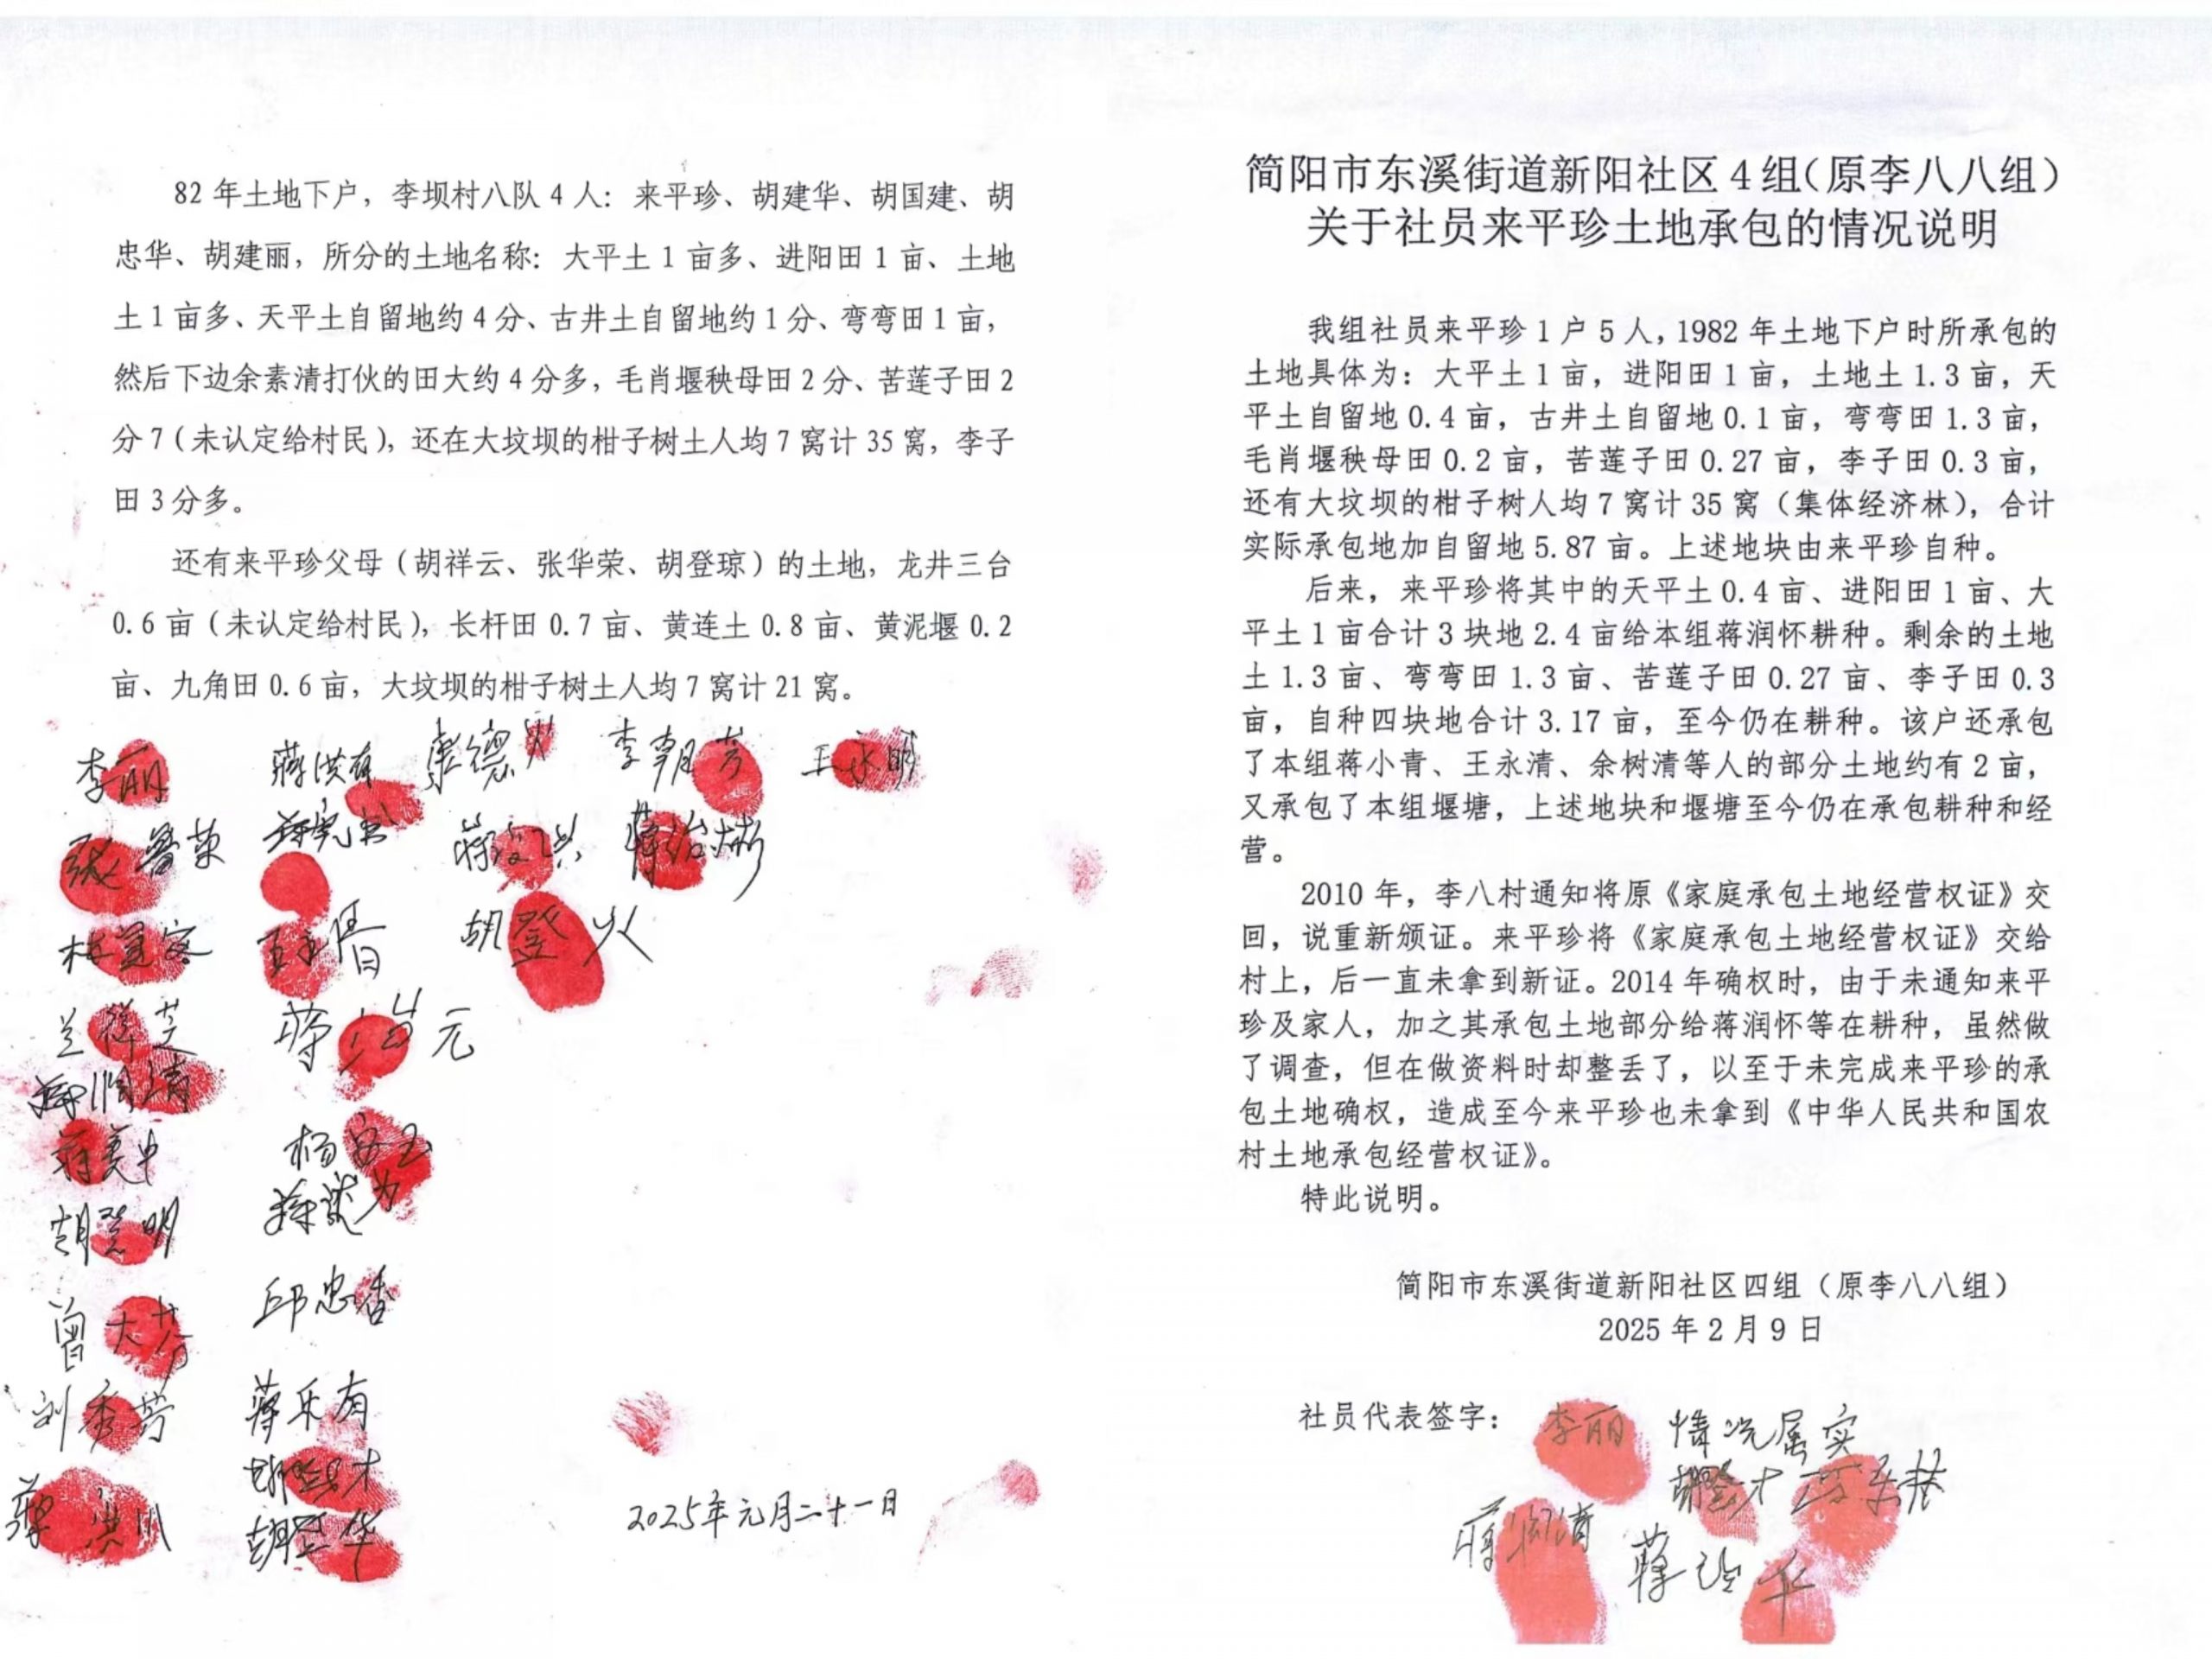 82 年土地下户，李坝村八队 4 人：来平珍、胡建华、胡国建、胡
忠华、胡建丽，所分的土地名称：大平土 1 亩多、进阳田 1 亩、土地
土 1 亩多、天平土自留地约 4 分、古井土自留地约 1 分、弯弯田 1 亩，
然后下边余素清打伙的田大约 4 分多，毛肖堰秧母田 2 分、苦莲子田 2
分 7（未认定给村民），还在大坟坝的柑子树土人均 7 窝计 35 窝，李子
田 3 分多。
还有来平珍父母（胡祥云、张华荣、胡登琼）的土地，龙井三台
0.6 亩（未认定给村民），长杆田 0.7 亩、黄连土 0.8 亩、黄泥堰 0.2
亩、九角田 0.6 亩，大坟坝的柑子树土人均 7 窝计 21 窝。
李丽
蒋洪有
李朝芳
王永明
胡登
蒋润清
胡登明
邱忠香
曾大芬
刘秀芳
蒋乐有
蒋洪川
胡登才
胡登华
2025年元月二十一日
简阳市东溪街道新阳社区 4 组（原李八八组）
关于社员来平珍土地承包的情况说明
我组社员来平珍 1 户 5 人，1982 年土地下户时所承包的
土地具体为：大平土 1 亩，进阳田 1 亩，土地土 1.3 亩，天
平土自留地 0.4 亩，古井土自留地 0.1 亩，弯弯田 1.3 亩，
毛肖堰秧母田 0.2 亩，苦莲子田 0.27 亩，李子田 0.3 亩，
还有大坟坝的柑子树人均 7 窝计 35 窝（集体经济林），合计
实际承包地加自留地 5.87 亩。上述地块由来平珍自种。
后来，来平珍将其中的天平土 0.4 亩、进阳田 1 亩、大
平土 1 亩合计 3 块地 2.4 亩给本组蒋润怀耕种。剩余的土地
土 1.3 亩、弯弯田 1.3 亩、苦莲子田 0.27 亩、李子田 0.3
亩，自种四块地合计 3.17 亩，至今仍在耕种。该户还承包
了本组蒋小青、王永清、余树清等人的部分土地约有 2 亩，
又承包了本组堰塘，上述地块和堰塘至今仍在承包耕种和经
营。
2010 年，李八村通知将原《家庭承包土地经营权证》交
回，说重新颁证。来平珍将《家庭承包土地经营权证》交给
村上，后一直未拿到新证。2014 年确权时，由于未通知来平
珍及家人，加之其承包土地部分给蒋润怀等在耕种，虽然做
了调查，但在做资料时却整丢了，以至于未完成来平珍的承
包土地确权，造成至今来平珍也未拿到《中华人民共和国农
村土地承包经营权证》。
特此说明。
简阳市东溪街道新阳社区四组（原李八八组）
2025 年 2 月 9 日
社员代表签字：李丽 情况属实
胡登才
蒋润清